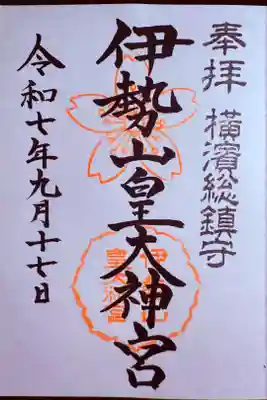 奉拝 横濱総鎮守
伊勢山皇大神宮
令和七年九月十七日